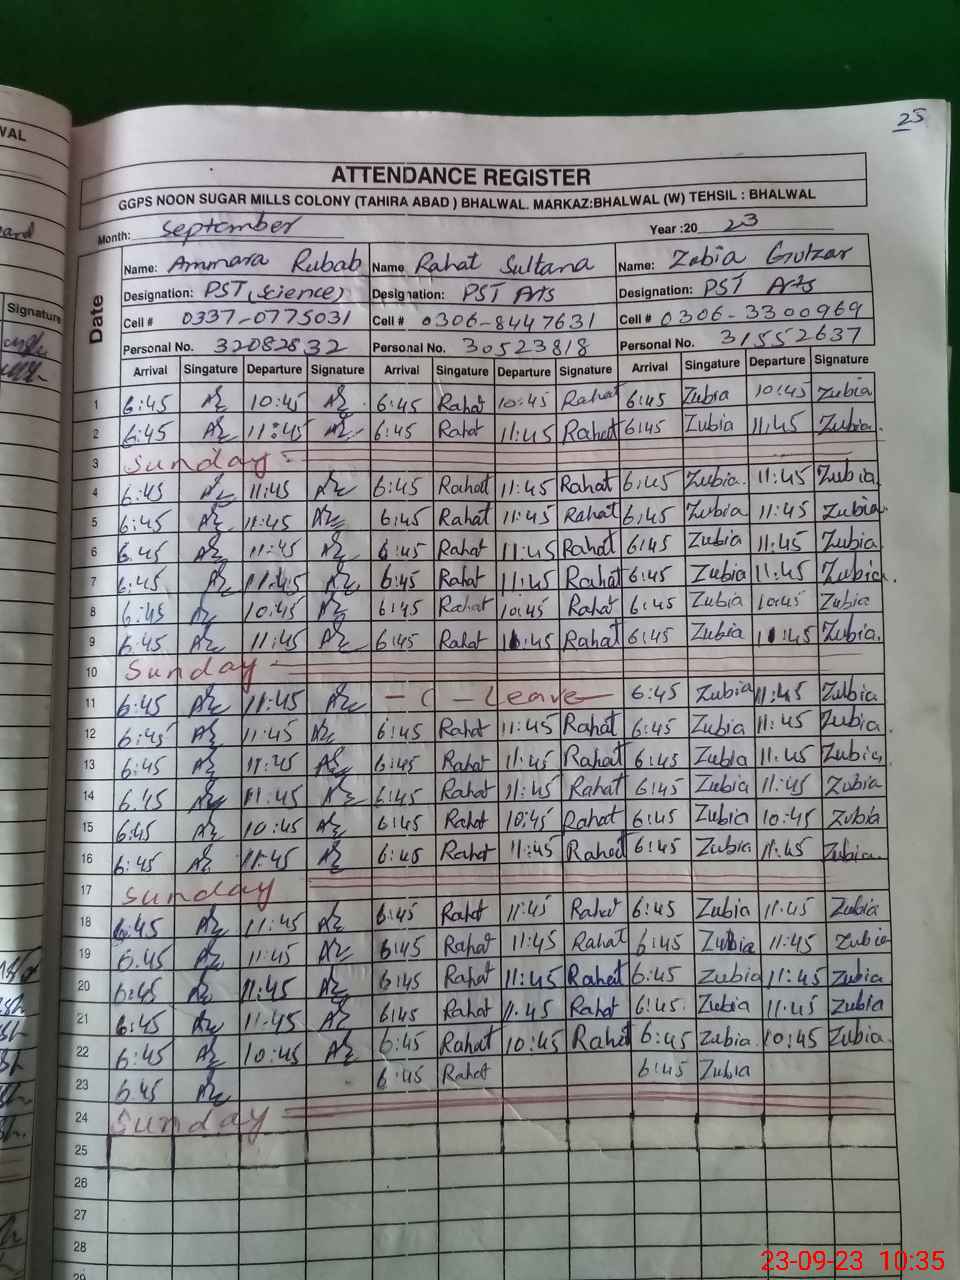 25
WAL
ATTENDANCE REGISTER
GGPS NOON SUGAR MILLS COLONY (TAHIRA ABAD ) BHALWAL. MARKAZ:BHALWAL (W) TEHSIL : BHALWAL
Month: September Year :20 23
Date
Name: Ammara Rubab Name Rahat Sultana Name: Zubia Gulzar
Designation: PST (Science) Designation: PST Arts Designation: PST Arts
Cell # 0337-0775031 Cell # 0306-8447631 Cell # 0306-3300969
Personal No. 32082832 Personal No. 30523818 Personal No. 31552637
Signature
Arrival Singature Departure Signature Arrival Singature Departure Signature Arrival Singature Departure Signature
1 6:45 10:45 6:45 Rahat 10:45 Rahat 6:45 Zubia 10:45 Zubia
2 6:45 11:45 6:45 Rahat 11:45 Rahat 6:45 Zubia 11:45 Zubia.
3 Sunday
4 6:45 11:45 6:45 Rahat 11:45 Rahat 6:45 Zubia. 11:45 Zubia
5 6:45 11:45 6:45 Rahat 11:45 Rahat 6:45 Zubia 11:45 Zubia.
6 6:45 11:45 6:45 Rahat 11:45 Rahat 6:45 Zubia 11:45 Zubia
7 6:45 11:45 6:45 Rahat 11:45 Rahat 6:45 Zubia 11:45 Zubia.
8 6:45 10:45 6:45 Rahat 10:45 Rahat 6:45 Zubia 10:45 Zubia
9 6:45 11:45 6:45 Rahat 11:45 Rahat 6:45 Zubia 11:45 Zubia.
10 Sunday
11 6:45 11:45 - C - Leave 6:45 Zubia 11:45 Zubia
12 6:45 11:45 6:45 Rahat 11:45 Rahat 6:45 Zubia 11:45 Zubia.
13 6:45 11:45 6:45 Rahat 11:45 Rahat 6:45 Zubia 11:45 Zubia.
14 6.45 11:45 6:45 Rahat 11:45 Rahat 6:45 Zubia 11:45 Zubia
15 6:45 10:45 6:45 Rahat 10:45 Rahat 6:45 Zubia 10:45 Zubia
16 6:45 11:45 6:45 Rahat 11:45 Rahat 6:45 Zubia 11:45 Zubia.
17 Sunday
18 6:45 11:45 6:45 Rahat 11:45 Rahat 6:45 Zubia 11:45 Zubia
19 6.45 11:45 6:45 Rahat 11:45 Rahat 6:45 Zubia 11:45 Zubia
20 6:45 11:45 6:45 Rahat 11:45 Rahat 6:45 Zubia 11:45 Zubia
21 6:45 11:45 6:45 Rahat 11.45 Rahat 6:45. Zubia 11:45 Zubia
22 6:45 10:45 6:45 Rahat 10:45 Rahat 6:45 Zubia. 10:45 Zubia.
23 6.45 6:45 Rahat 6:45 Zubia
24 Sunday
25
26
27
28
29
23-09-23 10:35